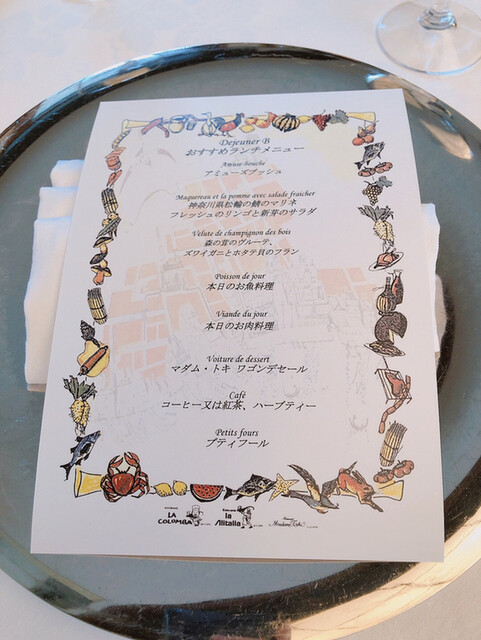 Dejeuner B
おすすめランチメニュー
Amuse-bouche
アミューズブッシュ
Maquereau et la pomme avec salade fraicher
神奈川県松輪の鯖のマリネ
フレッシュのリンゴと新芽のサラダ
Velute de champignon des bois
森の茸のヴルーテ、
ズワイガニとホタテ貝のフラン
Poisson de jour
本日のお魚料理
Viande du jour
本日のお肉料理
Voiture de dessert
マダム・トキ ワゴンデセール
Café
コーヒー又は紅茶、ハーブティー
Petits fours
プティフール
LA COLOMBA
la Alitalia
Madame Toki